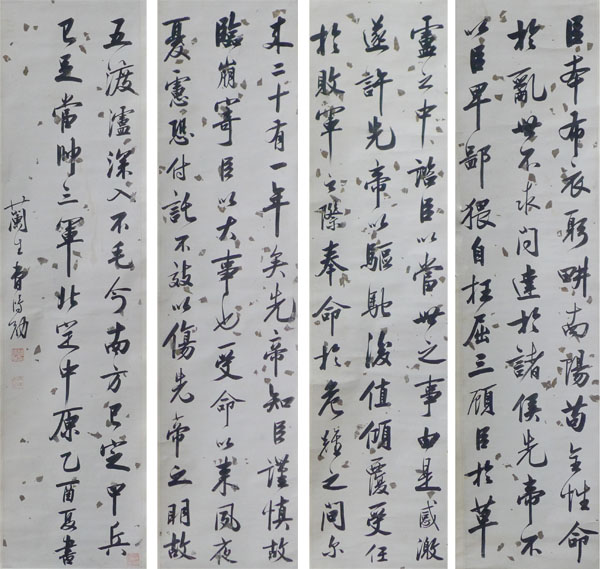 臣本布衣躬畊南陽苟全性命
於亂世不求聞達於諸侯先帝不
以臣卑鄙猥自枉屈三顧臣於草
廬之中諮臣以當世之事由是感激
遂許先帝以驅馳後值傾覆受任
於敗軍之際奉命於危難之間尔
來二十有一年矣先帝知臣謹慎故
臨崩寄臣以大事也受命以來夙夜
憂慮恐付託不效以傷先帝之明故
五渡瀘深入不毛今南方已定甲兵
已足當帥三軍北定中原乙酉夏書
蘭生曹鴻勛